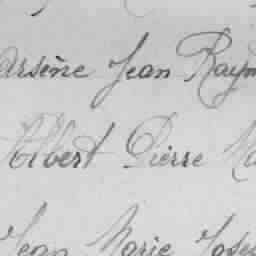 Arsène Jean Raym
Albert Pierre Ma
Jean Marie Josep